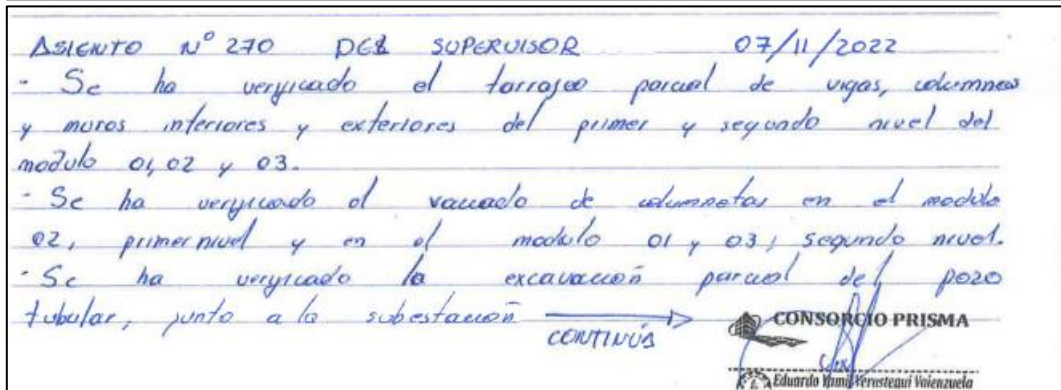 ASIENTO N° 270 DEL SUPERVISOR 07/11/2022
- Se ha verificado el tarrajeo parcial de vigas, columnas
y muros interiores y exteriores del primer y segundo nivel del
modulo 01, 02 y 03.
- Se ha verificado el vaceado de columnetas en el modulo
02, primer nivel y en el modulo 01 y 03, segundo nivel.
- Se ha verificado la excavación parcial del pozo
tubular, junto a la subestación
CONTINÚA
CONSORCIO PRISMA
Eduardo Yamil Verastegui Valenzuela